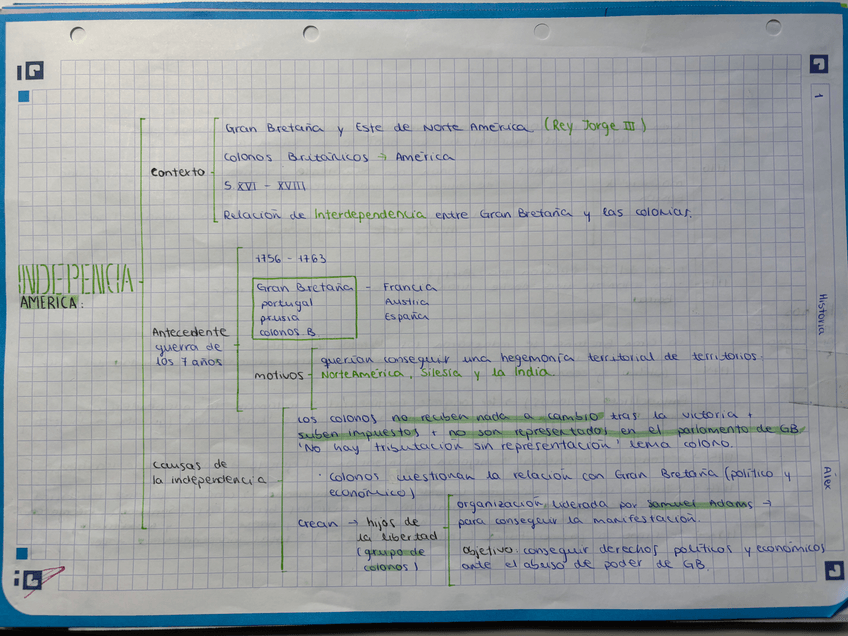 INDEPENCIA
AMERICA:
Contexto
Gran Bretaña y Este de Norte América (Rey Jorge III)
Colonos Británicos → América
S. XVI - XVIII
Relación de Interdependencia entre Gran Bretaña y las colonias.
Antecedente
guerra de
los 7 años
1756 - 1763
Gran Bretaña - Francia
portugal Austria
prusia España
colonos B.
motivos
querían conseguir una hegemonía territorial de territorios
Norte América, Silesia y la India.
Causas de
la independencia
Los colonos no reciben nada a cambio tras la victoria +
suben impuestos + no son representados en el parlamento de GB.
'No hay tributación sin representación' lema colono.
· Colonos cuestionan la relación con Gran Bretaña (político y
económico)
Crean → hijos de
la libertad
(grupo de
colonos)
organización liderada por Samuel Adams →
para conseguir la manifestación.
objetivo: conseguir derechos políticos y económicos
ante el abuso de poder de GB.
1
Historia
Álex